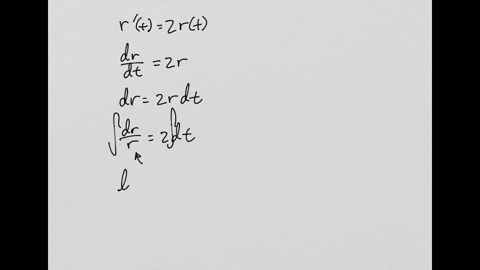 r'(t) = 2r(t)
dr/dt = 2r
dr = 2r dt
∫ dr/r = 2∫dt
l